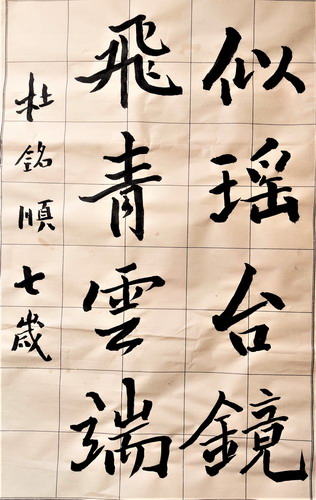 似瑶台鏡
飛青雲端
杜銘順七歲